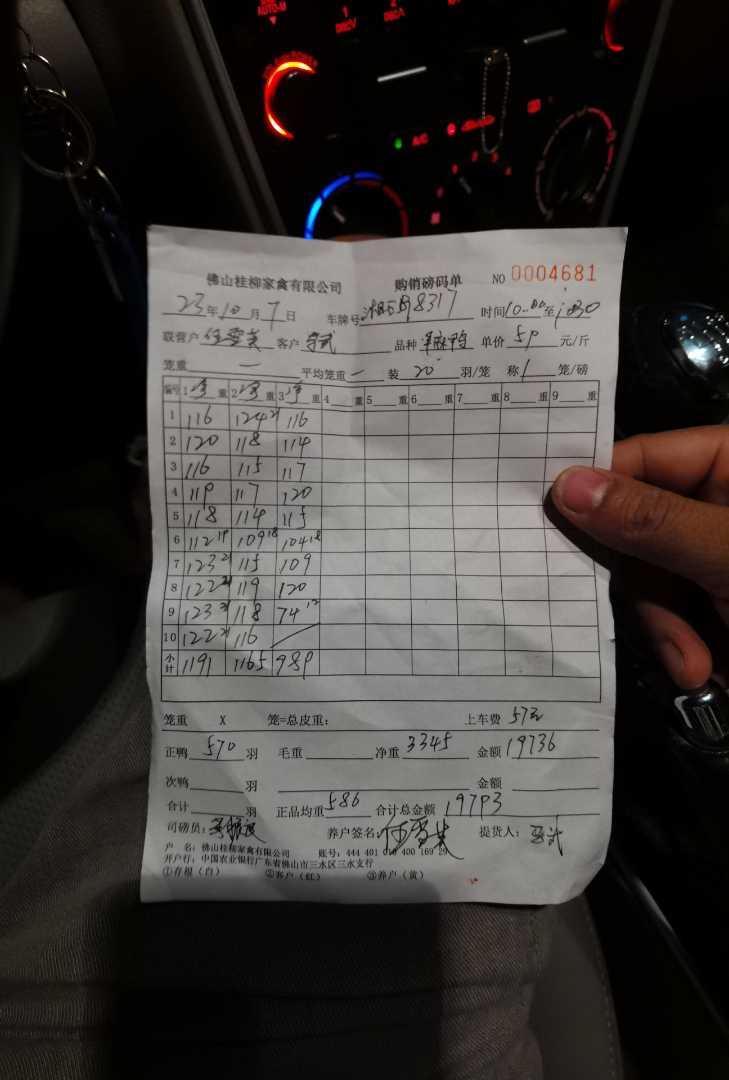 AUTO-M
1
DISCV
2
DISCA
A/C
佛山桂柳家禽有限公司 购销磅码单 NO 0004681
23年10月7日 车牌号 8317 时间10:00至
联营户 客户 品种 麻鸭 单价 5.9 元/斤
笼重 一 平均笼重 一 装 20 羽/笼 称 1 笼/磅
编号 1净重 2净重 3净重 4重 5重 6重 7重 8重 9重
1 116 124 21 116
2 120 118 114
3 116 115 117
4 119 117 120
5 118 114 115
6 112 19 109 18 104 18
7 123 21 115 109
8 122 21 119 120
9 123 21 118 74 12
10 122 21 116
小计 1191 1165 989
笼重 X 笼=总皮重： 上车费 57元
正鸭 570 羽 毛重 净重 3345 金额 19736
次鸭 羽 金额
合计 羽 正品均重 586 合计总金额 19793
司磅员： 养户签名： 提货人：
户 名：佛山桂柳家禽有限公司 账号：444 401 010 400 169 29
开户行：中国农业银行广东省佛山市三水区三水支行
①存根（白） ②客户（红） ③养户（黄）